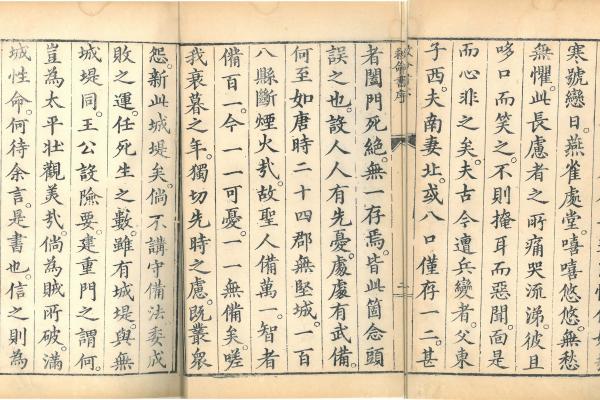 寒號戀日。燕雀處堂。嘻嘻悠悠。無愁
無懼。此長慮者之所痛哭流涕。彼且
哆口而笑之。不則掩耳而惡聞。面是
而心非之矣。夫古今遭兵變者。父東
子西。夫南妻北。或八口僅存一二。甚
救命書序
二
者闔門死絕。無一存焉。皆此箇念頭
誤之也。設人人有先憂。處處有武備。
何至如唐時二十四郡無堅城。一百
八縣斷煙火哉。故聖人備萬一。智者
備百一。今一一可憂。一一無備矣。嗟
我衰暮之年。獨切先時之慮。既叢眾
怨。新此城堤矣。倘不講守備法。委成
敗之運。任死生之數。雖有城堤。與無
城堤同。王公設險要。建重門之謂何。
豈為太平壯觀美哉。倘為賊所破。滿
城性命。何待余言。是書也。信之則為